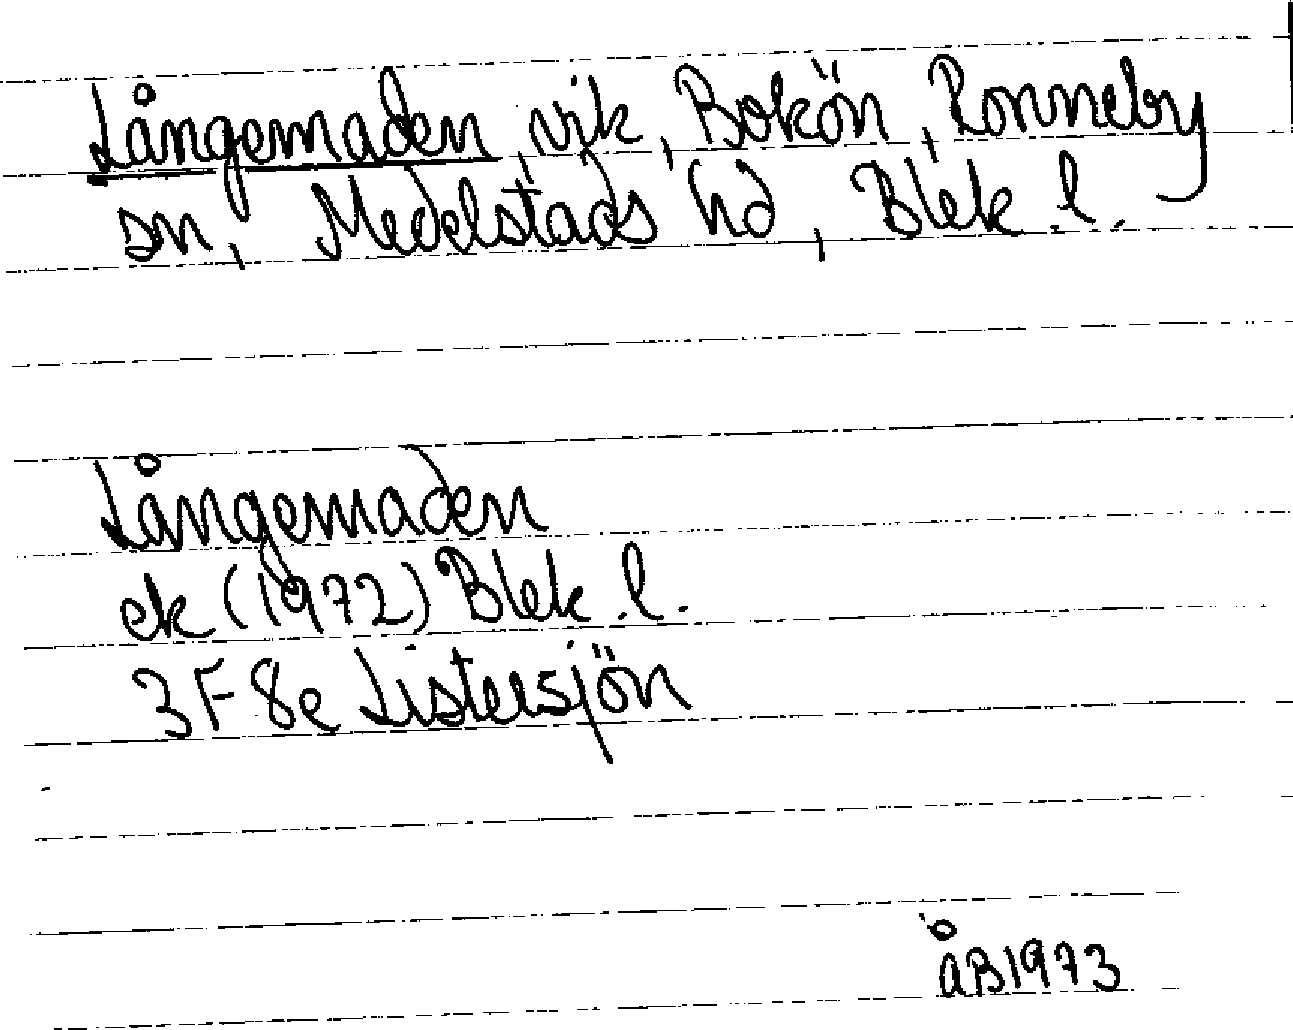 Långemaden, vik, Bokön, Ronneby
sn, Medelstads hd, Blek. l.
Långemaden
ek (1972) Blek. l.
3F 8e Listersjön
åB1973